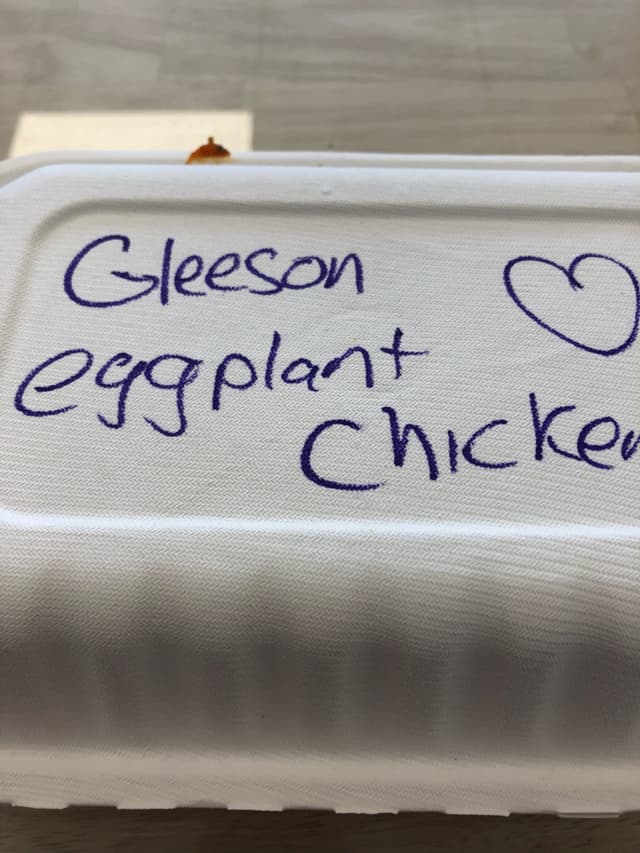 Gleeson
eggplant
Chicken